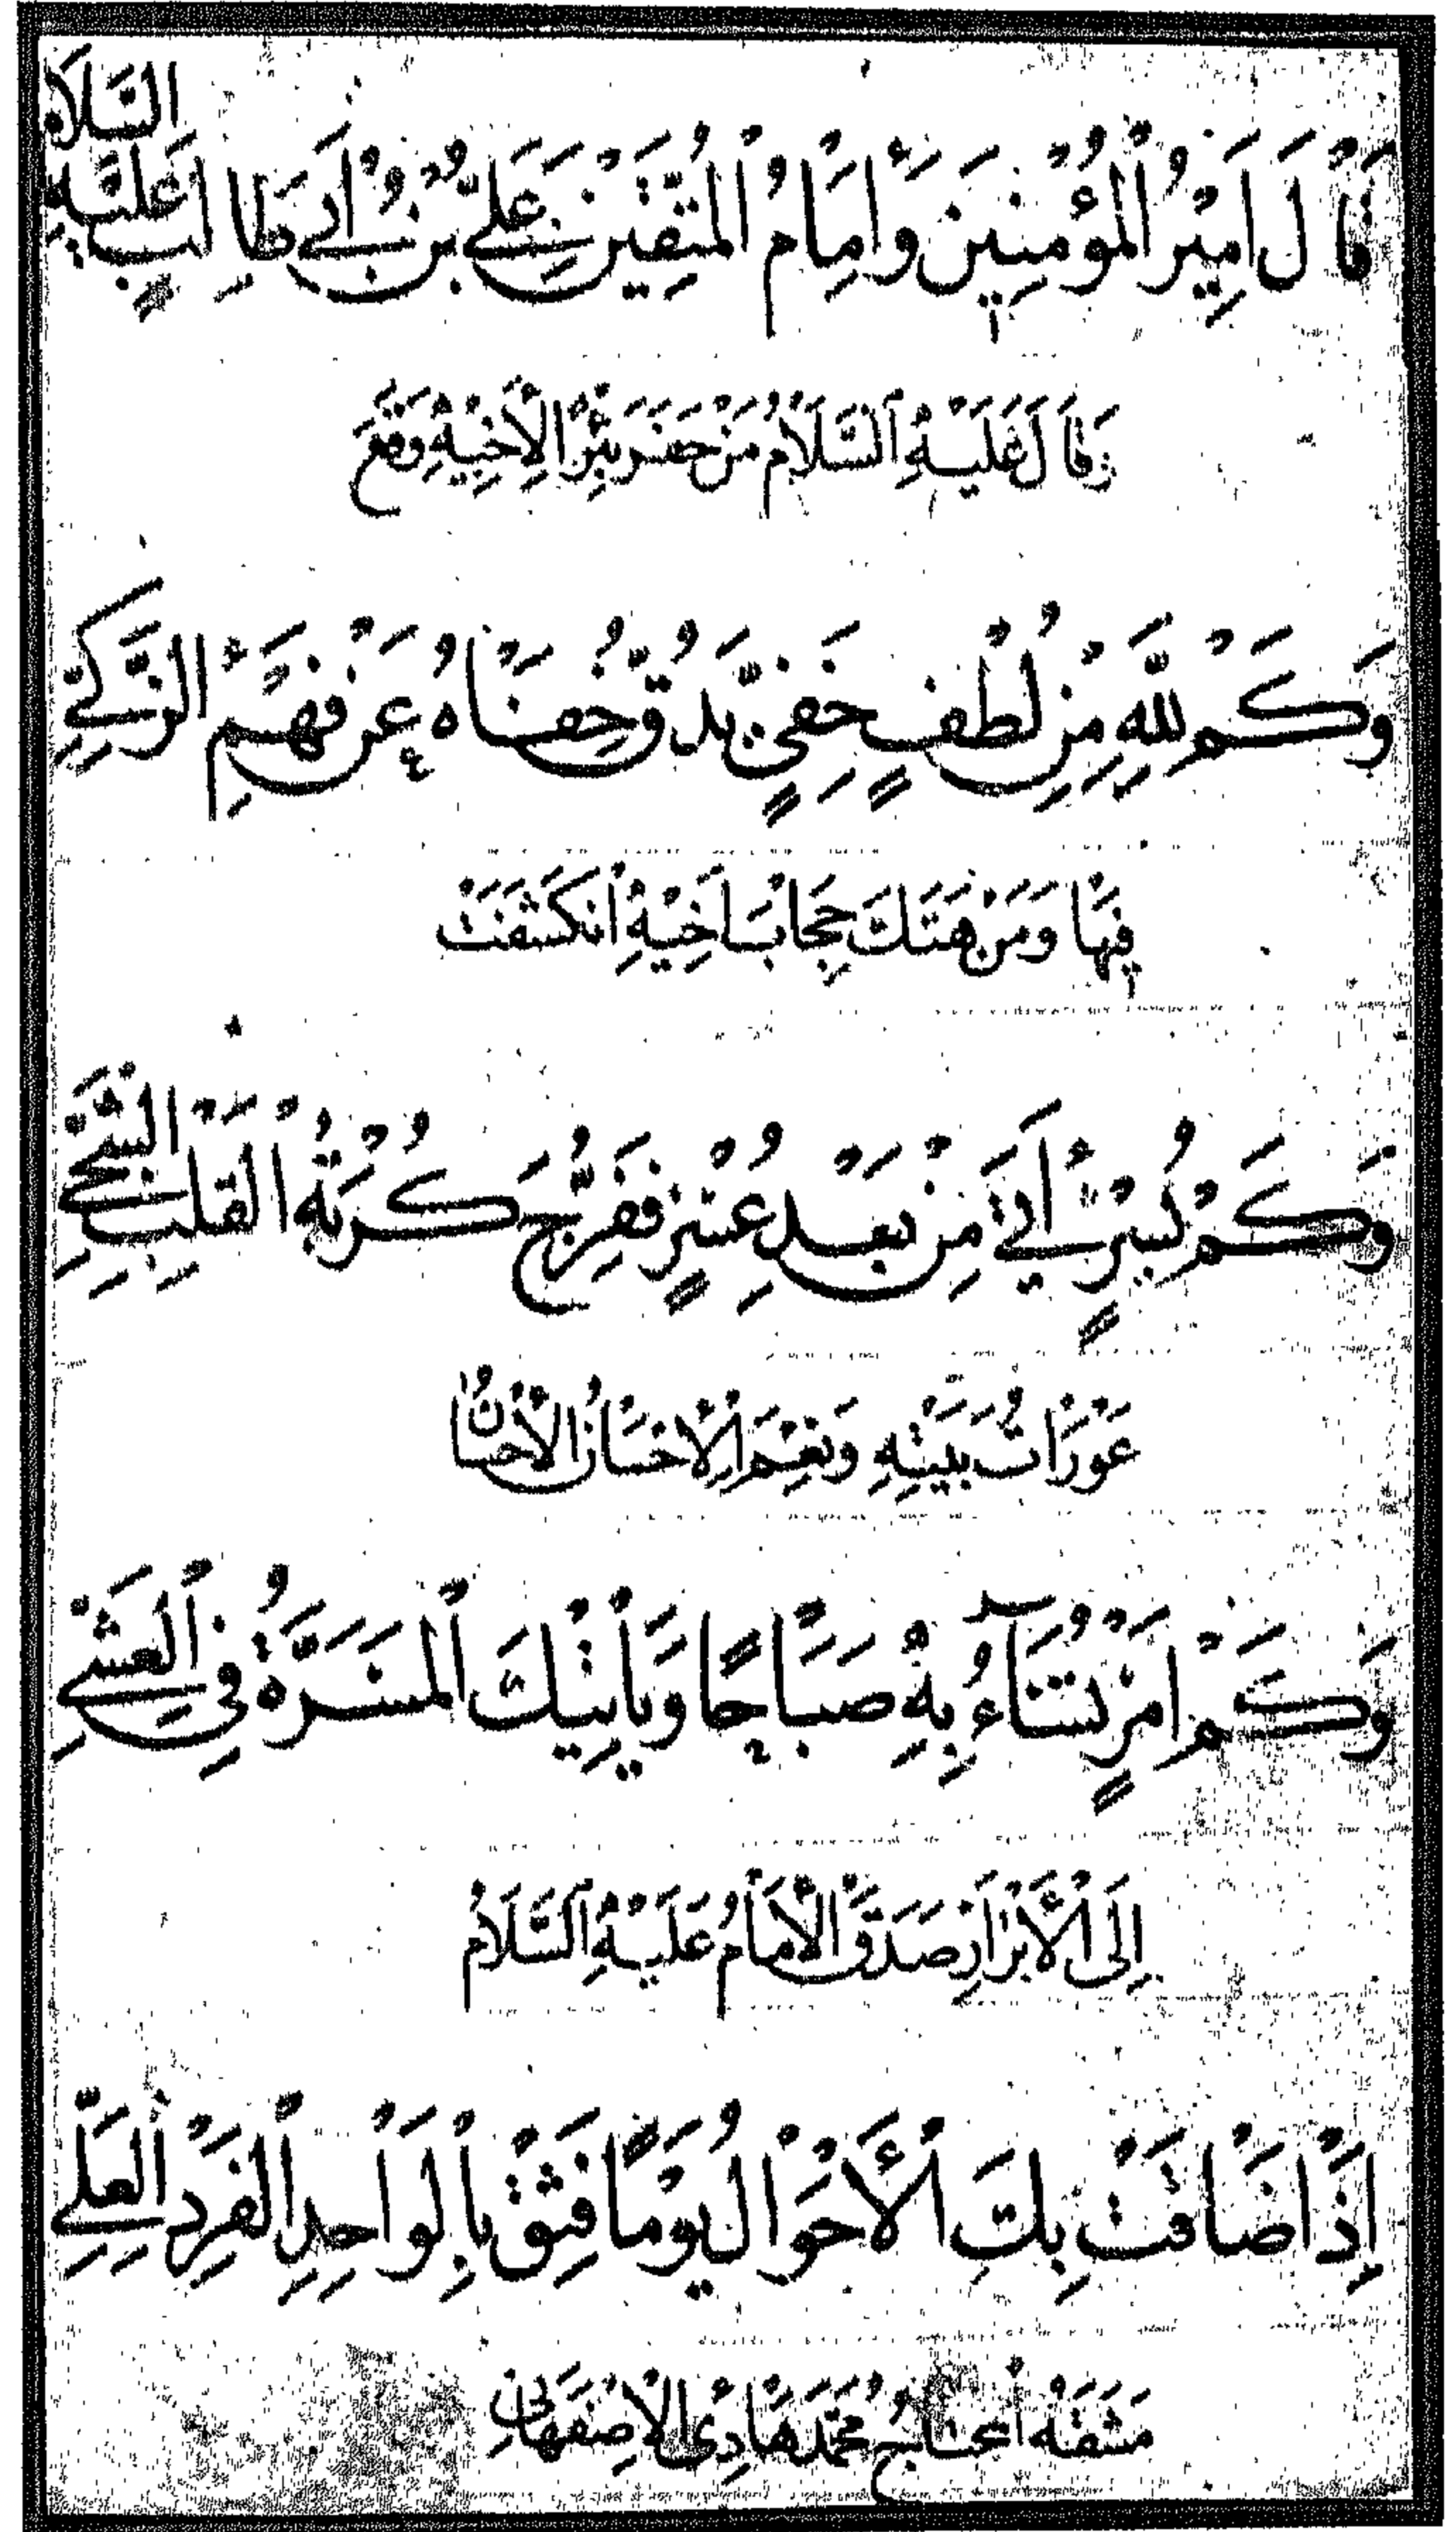 قَالَ اَمِيْرُ الْمُؤْمِنِيْنَ وَاِمَامُ الْمُتَّقِيْنَ عَلِيُّ بْنُ اَبِي طَالِبٍ عَلَيْهِ السَّلَام
وَقَالَ عَلَيْهِ السَّلَامُ مَنْ حَفَرَ بِئْرًا لِاَخِيْهِ وَقَعَ
وَكَمْ لِلّٰهِ مِنْ لُطْفٍ خَفِيٍّ يَدُقُّ خِفَاهُ عَنْ فَهْمِ الزَّكِيِّ
فِيْهَا وَمَنْ هَتَكَ حِجَابَ اَخِيْهِ اَنْكَشَفَتْ
وَكَمْ يُسْرٍ أَتَى مِنْ بَعْدِ عُسْرٍ فَفَرَّجَ كُرْبَةَ الْقَلْبِ الشَّجِيِّ
عَوْرَاتُ بَيْتِهِ وَنِعْمَ الْاِحْسَانُ الْاِحْسَانُ
وَكَمْ اَمْرٍ تُسَآءُ بِهِ صَبَاحًا وَيَأْتِيْكَ الْمَسَرَّةُ فِي الْعَشِيِّ
اِلَى الْأَبْرَارِ صَدَقَ الْاِمَامُ عَلَيْهِ السَّلَامُ
اِذَا ضَاقَتْ بِكَ الْأَحْوَالُ يَوْمًا فَثِقْ بِالْوَاحِدِ الْفَرْدِ الْعَلِيِّ
مَشَقَهُ مُحَمَّد هَادِي الْاِصْفَهَانِي